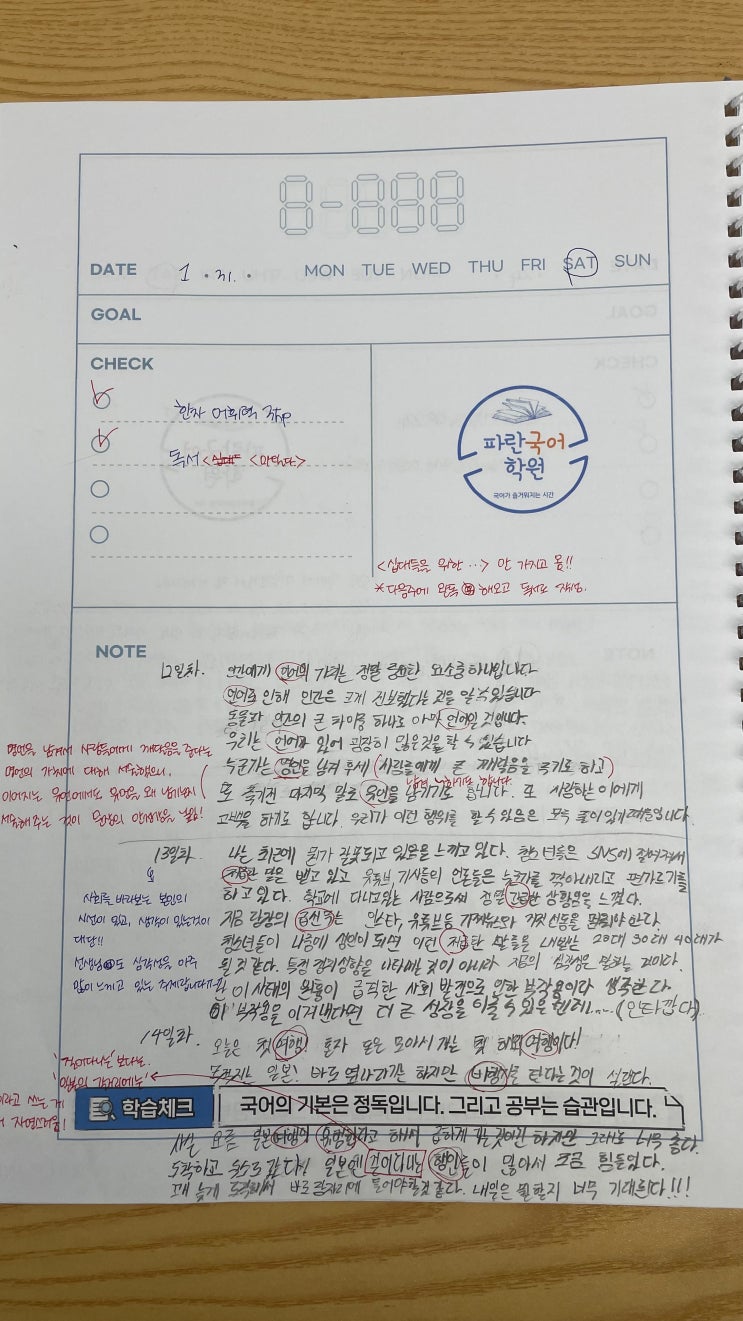 8-888
DATE 1 . 21 . MON TUE WED THU FRI SAT SUN
GOAL
CHECK
한자 어휘력
독서 <십대> <마당>
파란국어
학원
국어가 즐거워지는 시간
<십대들을 위한 …> 안 가지고 옴!!
*다음주에 완독 해오고 독서로 작성.
NOTE
12일차. 인간에게 언어의 가치는 정말 중요한 요소중 하나입니다
언어로 인해 인간은 크게 진보했다는 것을 알 수 있습니다
동물과 인간의 큰 차이중 하나로 아마 언어일 것입니다.
우리는 언어가 있어 굉장히 많은것을 할 수 있습니다
누군가는 명언을 남겨 후세 (사람들에게 큰 깨달음을 주기도 하고)
또 죽기전 마지막 말로 유언을 남기기도 합니다. 또 사랑하는 이에게
고백을 하기도 합니다. 우리가 이런 행위를 할 수 있음은 모두 말이 있기 때문입니다.
명언을 남겨서 사람들에게 깨달음을 준다는
명언의 가치에 대해 서술했으니,
이어지는 유언에서도 유언을 왜 남기는지
서술해주는 것이 문장의 안정성을 높임!
13일차 나는 최근에 뭔가 잘못되고 있음을 느끼고 있다. 청소년들은 SNS에 찌들어서
저급한 말을 뱉고 있고 유튜브, 기사들의 언론들은 누군가를 깎아내리고 편가르기를
하고 있다. 학교에 다니고 있는 사람으로써 정말 긴급한 상황임을 느꼈다.
지금 당장의 급선무는 인스타, 유튜브등 가짜뉴스와 거짓 선동을 멈춰야 한다.
청소년들이 나중에 성인이 되면 이런 저급한 말들을 내뱉는 20대 30대 40대가
될 것 같다. 특정 정치성향을 나타내는 것이 아니라 지금의 심각성을 말하는 것이다.
난 이 사태의 원흉이 급격한 사회 발전으로 인한 부작용이라 생각한다.
이 부작용을 이겨낸다면 더 큰 성장을 이룰 수 있을 텐데.... (안타깝다)
사회를 바라보는 본인의
시선이 있고, 생각이 있는것이
대단!!
선생님도 심각성을 아주
많이 느끼고 있는 주제랍니다ㅠㅠ
14일차. 오늘은 첫 여행! 혼자 돈을 모아서 가는 첫 해외 여행이다!
목적지는 일본! 바로 옆나라기는 하지만 비행기를 탄다는것이 설렌다.
학습체크 국어의 기본은 정독입니다. 그리고 공부는 습관입니다.
사실 요즘 일본여행이 유행한다고 해서 급하게 가는 것이긴 하지만 그래도 너무 좋다.
도착하고 숙소로 갔다! 일본엔 걸어다니는 행인들이 많아서 조금 힘들었다.
꽤 늦게 도착해서 바로 잠자리에 들어야할것 같다. 내일은 뭘할지 너무 기대된다!!!
'걸어다니는' 보다는
'일본의 길거리에는'
이라고 쓰는 게
더 자연스러움!